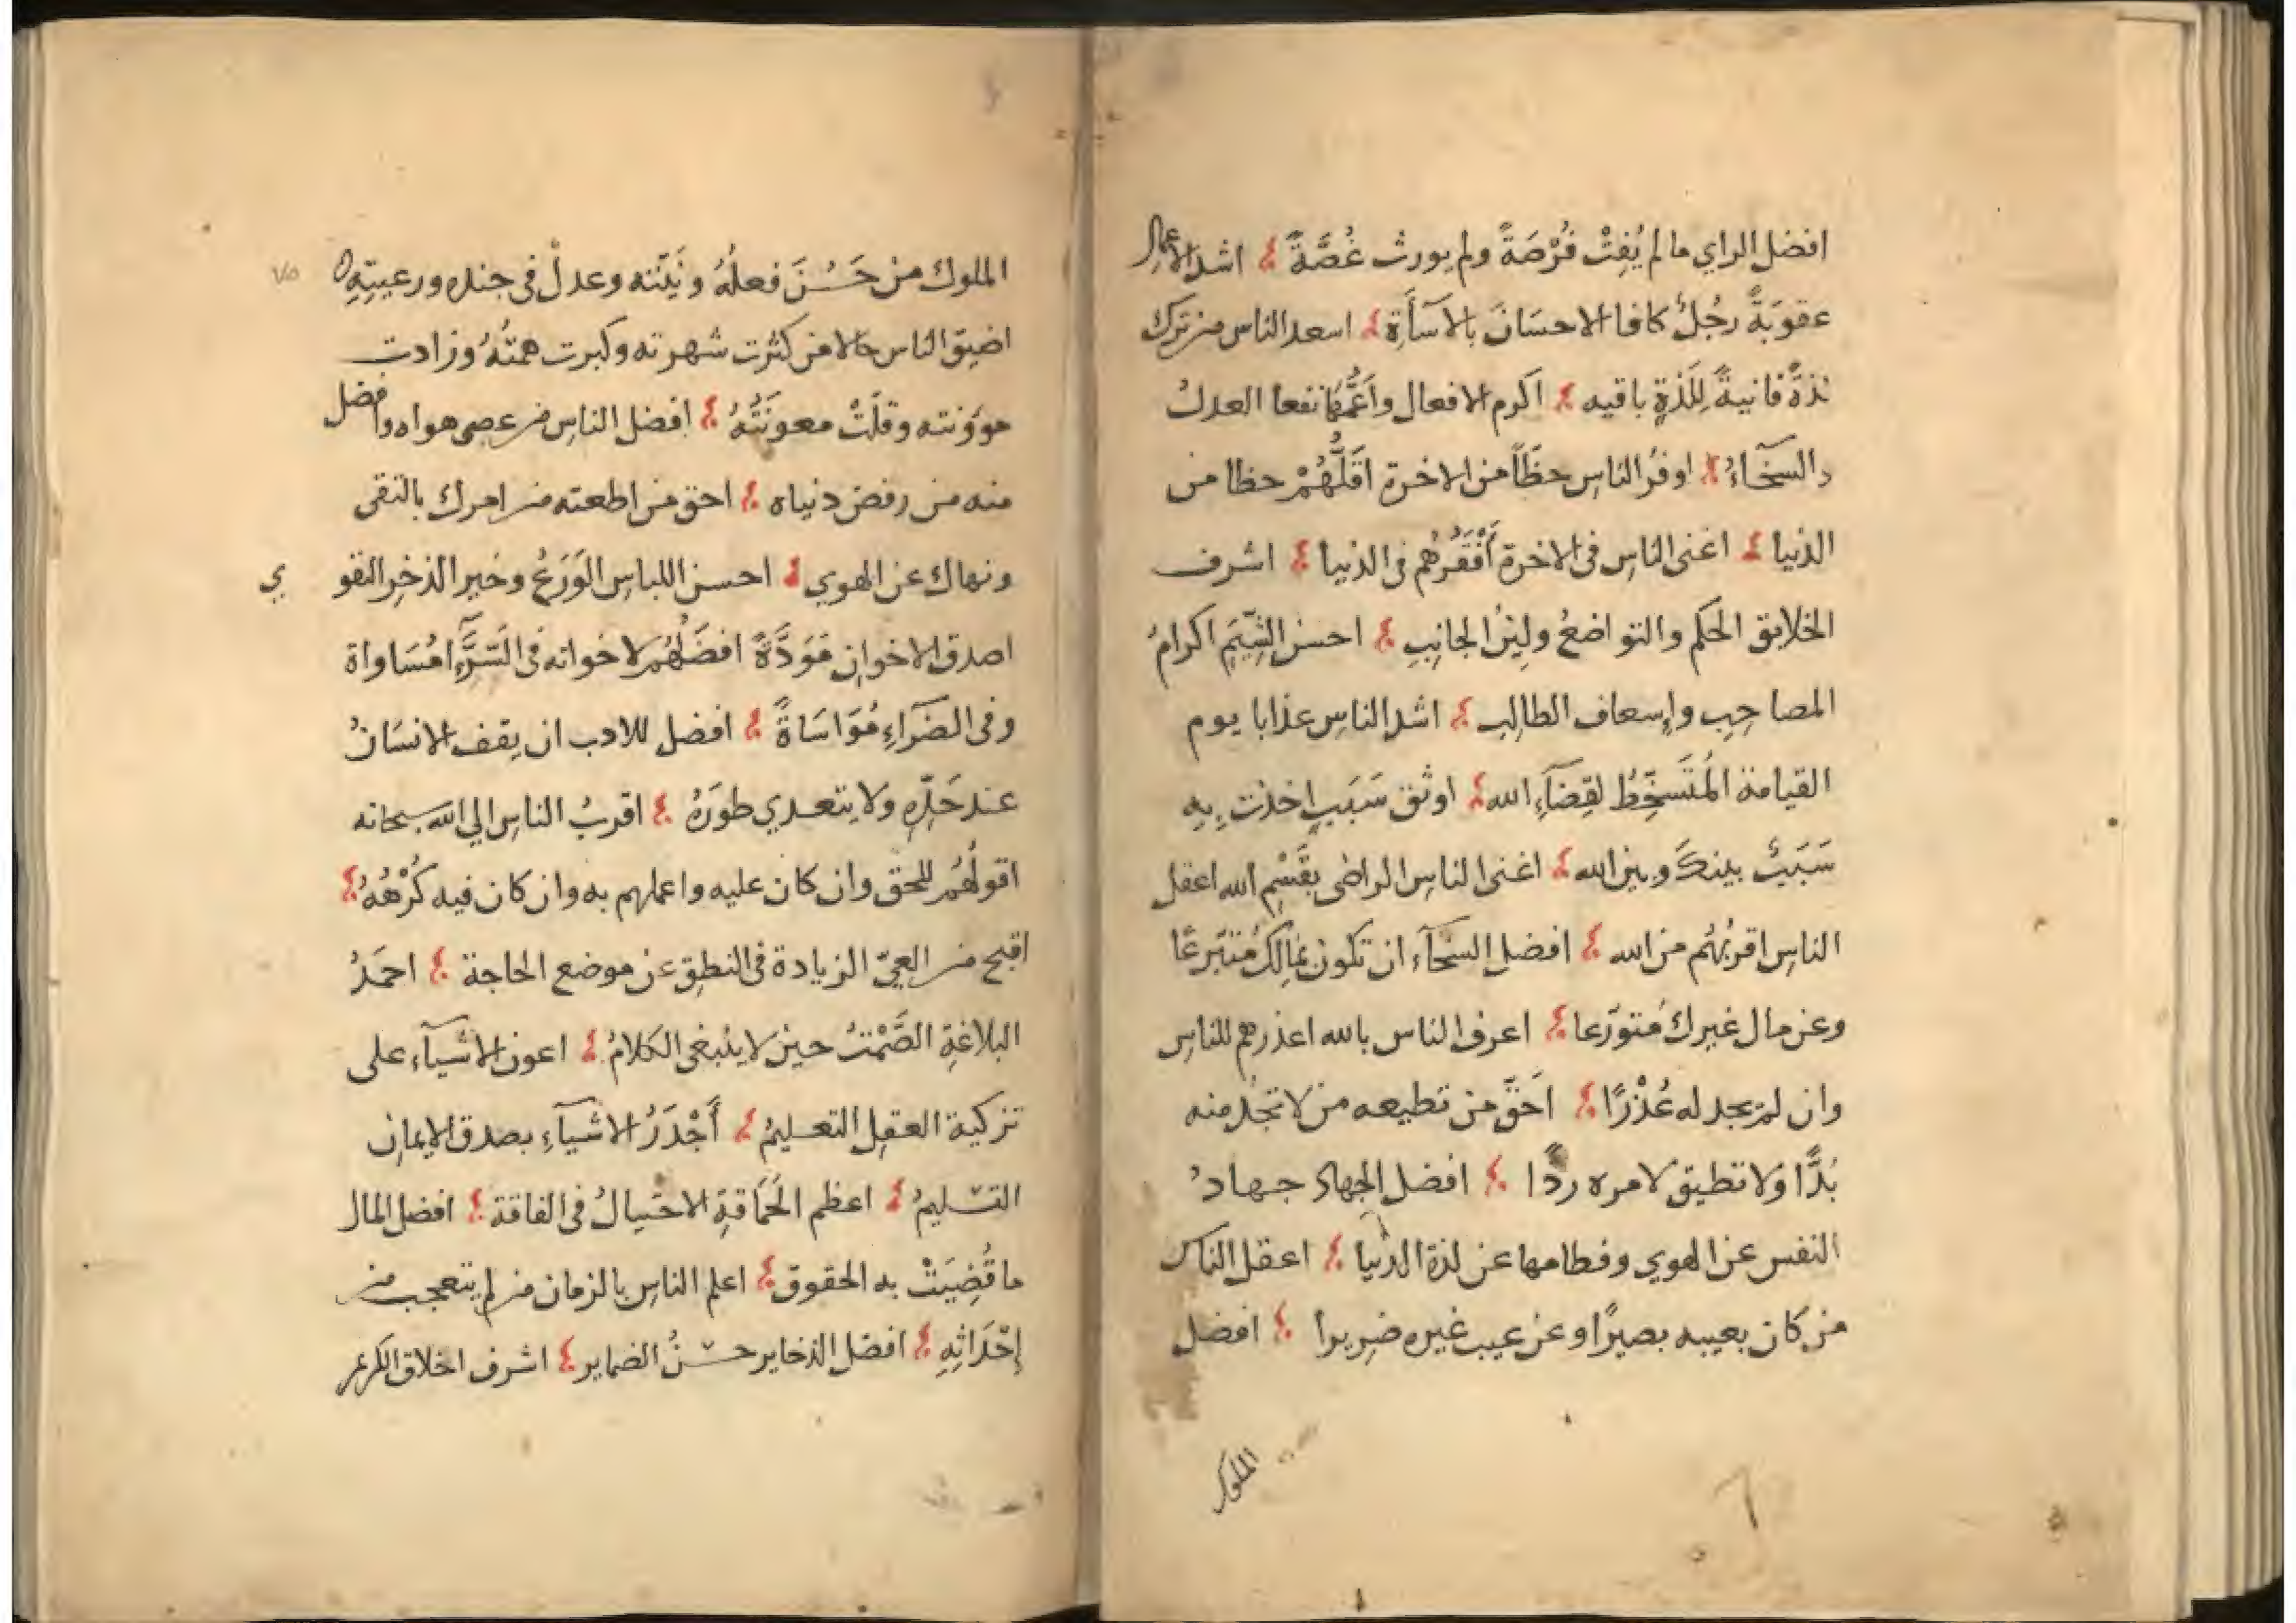 افضل الراي ما لم يُفِتْ فُرْصَةً ولم يورث غُصَّةً ؛ اشد الاعمال
عقوبَةً رجُلٌ كافا الاحسَانَ بالاسَآأةِ ؛ اسعد الناس من ترك
لذةً فانيةً لِلَذةٍ باقيه ؛ اكرم الافعال واَعَمُّهَا نفعا العدلُ
والسخَآءُ ؛ اوفرُ الناسِ حظّاً من الاخرة اقَلُّهُمْ حظا من
الدنيا ؛ اغنى الناسِ فى الاخرة أَفْقَرُهُم فى الدنيا ؛ اشرف
الخلايق الحكم والتواضعُ ولِينُ الجانِبِ ؛ احسن الشِّيَمِ اكرامُ
المصاحِبِ واِسعاف الطالِبِ ؛ اشد الناسِ عذابا يوم
القيامة المُتَسَخِّطُ لقِضَآءِ الله ؛ اوثق سَبَبٍ اخذت بِهِ
سَبَبٌ بينكَ وبين الله ؛ اغنى الناسِ الراضى بقَسْمِ الله اعقل
الناس اقربُهُم من الله ؛ افضل السخَآءِ ان تكون بمالِكَ مُتبرعًا
وعن مال غيرك مُتورّعا ؛ اعرف الناس بالله اعذرهم للناسِ
وان لم يجد له عُذْرًا ؛ اَحَقّ من تطيعه من لا تجُد منه
بُدًّا وَلا تطيق لامره ردًّا ؛ افضل الجهاد جهادُ
النفس عن الهوي وفطامها عن لذة الدنيا ؛ اعقل الناس
من كان بعيبه بصيرًا وعن عيب غيره ضريرا ؛ افضل
الملوك
الملوك من حَسُنَ فعلُهُ ونَيّتَه وعدلْ فى جنده ورعيتِهِ ٥
٧٥
اضيق الناس حالا من كثرت شهرته وكبرت همتُهُ وزادت
موؤنته وقلَتْ معونَتُهُ ؛ افضل الناسِ من عصى هواه وافضل
منه من رفض دنياه ؛ احق من اطعته من امرك بالتقى
ونهاك عن الهوي ؛ احسن اللباسِ الوَرَعُ وخير الذخِرِ التقوي
اصدق الاخوانِ مَوَدَّةً افضَلُهُم لاخوانه فى السَّرَّآءِ مُسَاواة
وفى الضرَّآءِ مُوَاسَاةً ؛ افضل للادب ان يقف الانسَانُ
عند حَدِّهِ ولا يتعدي طورَهُ ؛ اقربُ الناسِ الي الله سبحانه
اقولُهُم للحق وان كان عليه واعملهم به وان كان فيه كُرْهُهُ ؛
اقبح من العِيّ الزيادة فى النطِق عن موضع الحاجة ؛ احمَدُ
البلاغةِ الصَّمْتُ حين لا ينبغى الكلامُ ؛ اعون الاشيآء على
تزكية العقلِ التعليمُ ؛ أَجْدَرُ الاشيآءِ بصدق الايمانِ
التسليمُ ؛ اعظم الحَمَاقةِ الاختيالُ فى الفاقة ؛ افضل المال
ما قُضِيَتْ به الحقوق ؛ اعلم الناسِ بالزمان من لم يتعجب من
إحْدَاثِهِ ؛ افضل الذخاير حسنُ الضماير ؛ اشرف اخلاق الكريم